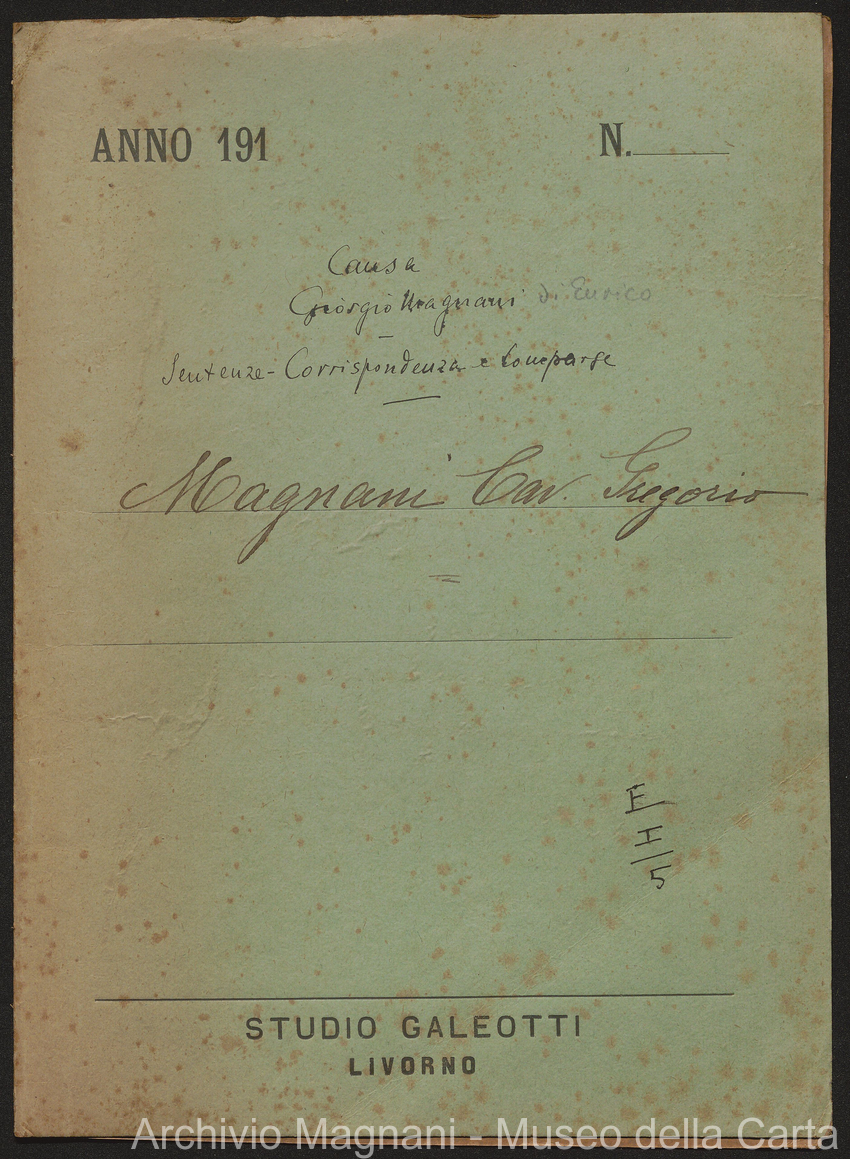 ANNO 191 N.
Causa
Giorgio Magnani di Enrico
Sentenze - Corrispondenza e Comparse
Magnani Cav. Gregorio
E
I
5
STUDIO GALEOTTI
LIVORNO
Archivio Magnani - Museo della Carta